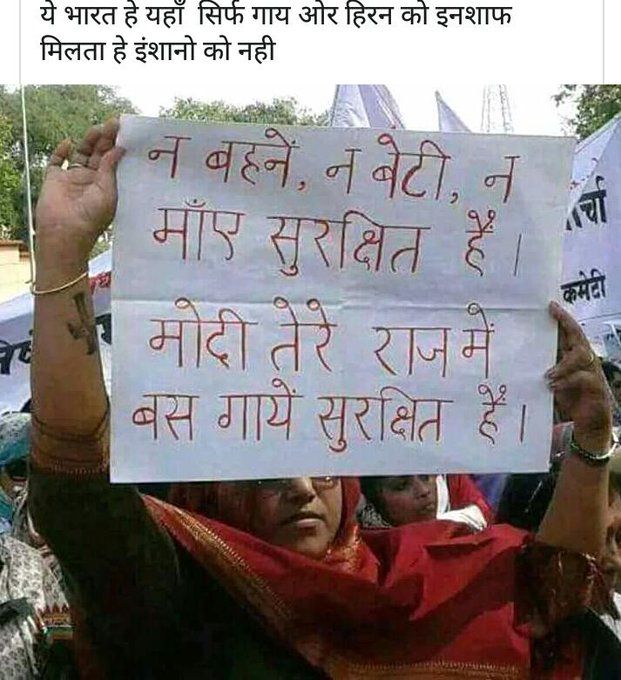 ये भारत हे यहाँ सिर्फ गाय ओर हिरन को इनशाफ
मिलता हे इंशानो को नही
न बहनें, न बेटी, न
माँए सुरक्षित हैं।
मोदी तेरे राज में
बस गायें सुरक्षित हैं।
र्चा
कमेटी